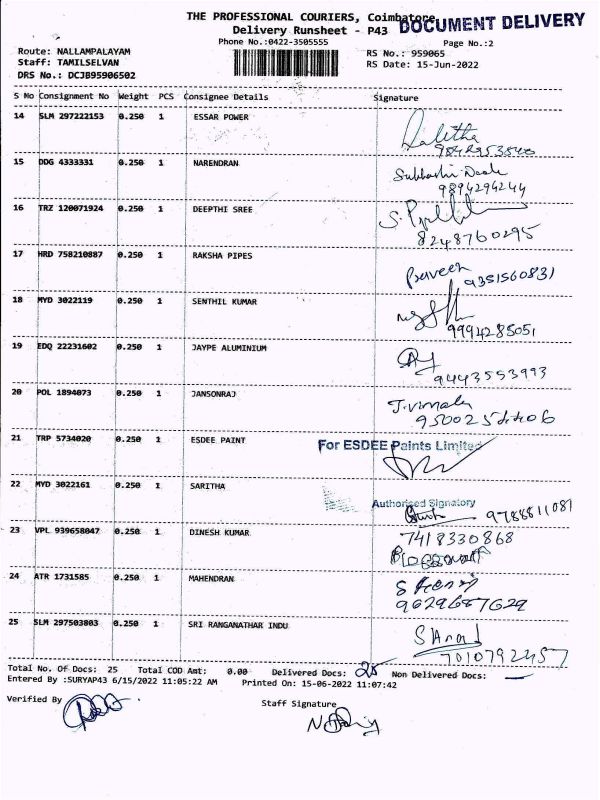 THE PROFESSIONAL COURIERS, Coimbatore
DOCUMENT DELIVERY
Delivery Runsheet - P43
Phone No.:0422-3505555
Page No.:2
Route: NALLAMPALAYAM
RS No.: 959065
Staff: TAMILSELVAN
RS Date: 15-Jun-2022
DRS No.: DCJB95906502
S No Consignment No Weight PCS Consignee Details Signature
14 SLM 297222153 0.250 1 ESSAR POWER Lalitha
9842953840
15 DDG 4333331 0.250 1 NARENDRAN
9894294244
16 TRZ 120071924 0.250 1 DEEPTHI SREE
8248760295
17 HRD 758210887 0.250 1 RAKSHA PIPES Praveen
9351560831
18 MYD 3022119 0.250 1 SENTHIL KUMAR
9994285051
19 EDQ 22231602 0.250 1 JAYPE ALUMINIUM
9443553993
20 POL 1894073 0.250 1 JANSONRAJ J. Vimala
21 TRP 5734020 0.250 1 ESDEE PAINT For ESDEE Paints Limited
22 MYD 3022161 0.250 1 SARITHA Authorised Signatory
9788811081
23 VPL 939658047 0.250 1 DINESH KUMAR 7418330868
24 ATR 1731585 0.250 1 MAHENDRAN
9629687629
25 SLM 297503803 0.250 1 SRI RANGANATHAR INDU
7010792457
Total No. Of Docs: 25 Total COD Amt: 0.00 Delivered Docs: 25 Non Delivered Docs: —
Entered By :SURYAP43 6/15/2022 11:05:22 AM Printed On: 15-06-2022 11:07:42
Verified By
Staff Signature